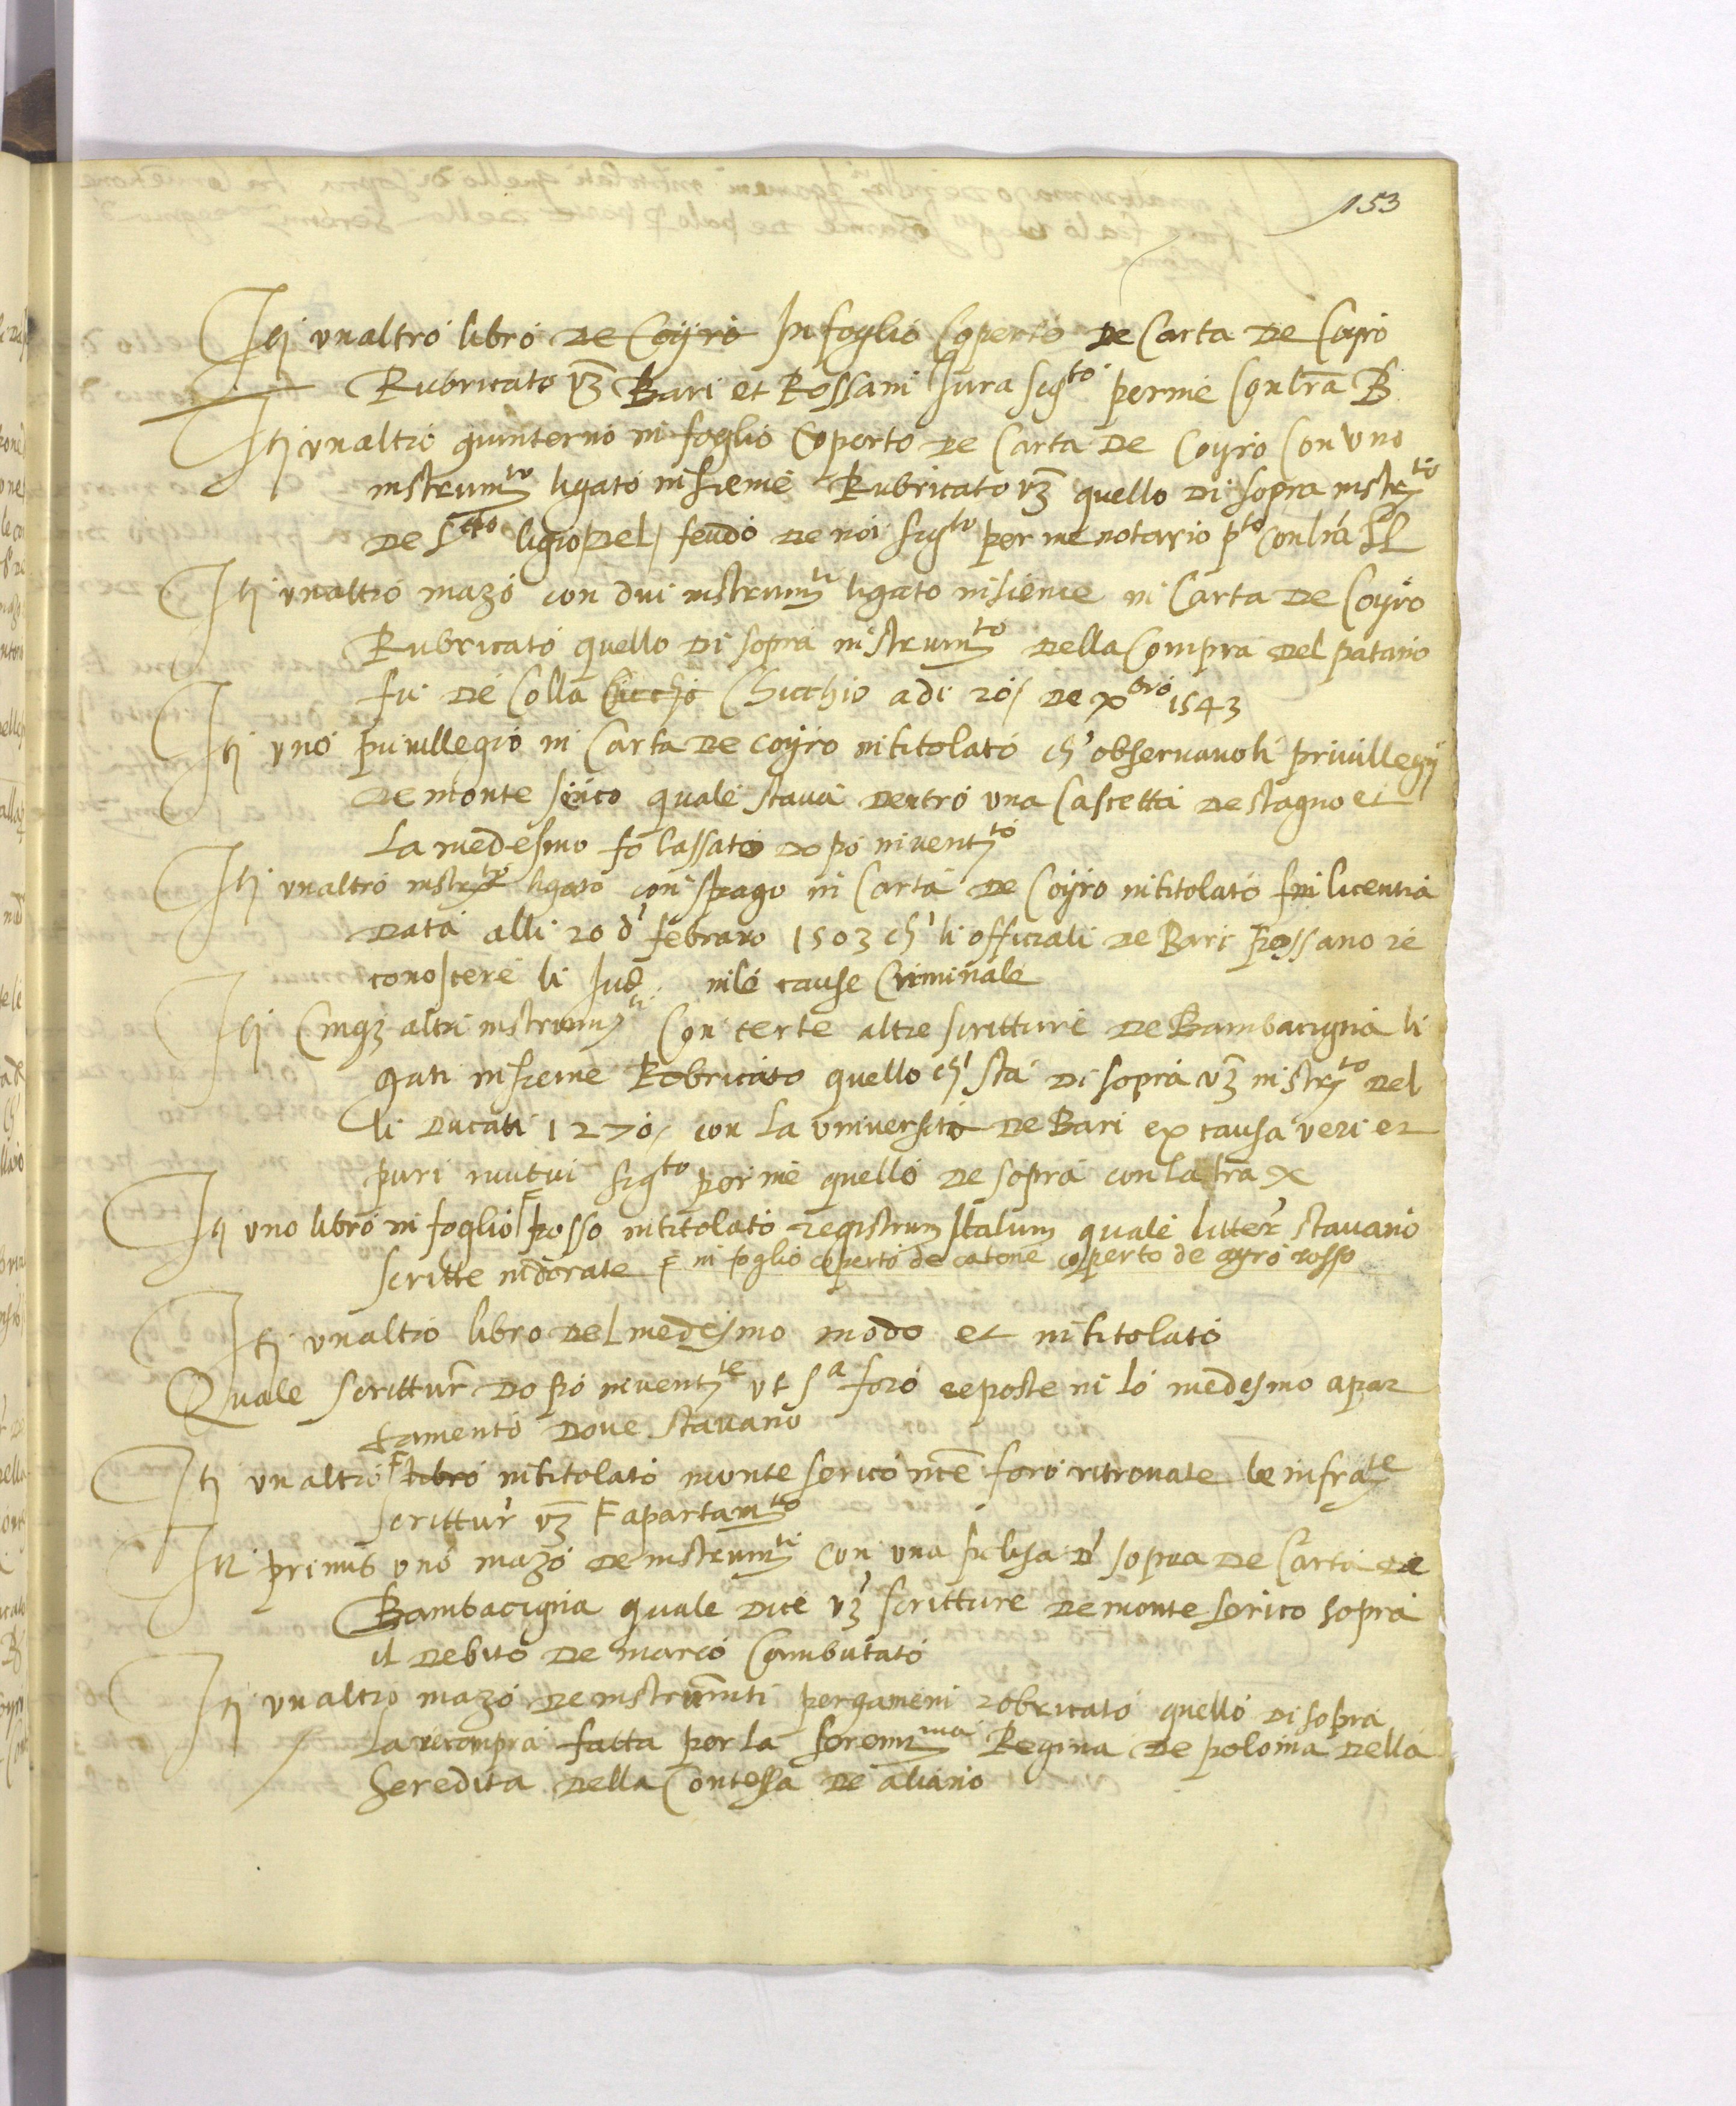 153
Itj vnaltro libro de Coyro In foglio Coperto de Carta de Coyro
Rubricato vz Bari et Rossani Jura sigto per me Contra B
Itj vnaltro quinterno in foglio Coperto de Carta de Coyro Con vno
instrumto ligato insieme Rubricato vz quello di sopra instrto
de ligio del feudo de noi sigto per me notario pto contra
Itj vnaltro mazo con dui instrumti ligato insieme in Carta de Coyro
Rubricato quello di sopra instrumto della Compra del patano
fu de Colla Cicchio Chicchio adi 20 de xbro 1543
Itj vno priuillegio in Carta de coyro intitolato ch' observanoli priuillegij
de monte serico quale staua dentro vna Cascetta de stagno et
La medesmo fo lassato dopo inventto
Itj vnaltro instrto ligato con spago in Carta de Coyro intitolato licentia
data alli 20 d' febraro 1503 ch' li officiali de Bari Rossano re
conoscere li Jud nile cause Criminale
Itj Cinqz altri instrumti Con certe altre scritture de Bambacigna li
gati insieme Robricato quello ch' sta di sopra vz instrto del
li ducati 1270 con la vniversita de Bari ex causa veri et
puri mutui sigto per me quello de sopra con latra X
Itj vno libro in foglio rosso intitolato registrum Italum quale litter' stauano
scritte indorate in foglio coperto de catone coperto de coyro rosso
Itj vnaltro libro del medesmo modo et intitolato
Quale scrittur' dopo inventte vt sa foro reposte in lo medesmo apar
tamento doue stauano
Itj vn altro libro intitolato monte serico nce foro ritrouate le infratte
scrittur' vz apartamto
In primis vno mazo de instrumti con vna pulisa d' sopra de Carta de
Bambacigna quale dice vz scritture de monte serico sopra
il debito de marco Cambutato
Itj vnaltro mazo de instrumti pergameni robricato quello di sopra
La recompra fatta per la serenma Regina de polonia della
heredita della Contessa de aliano